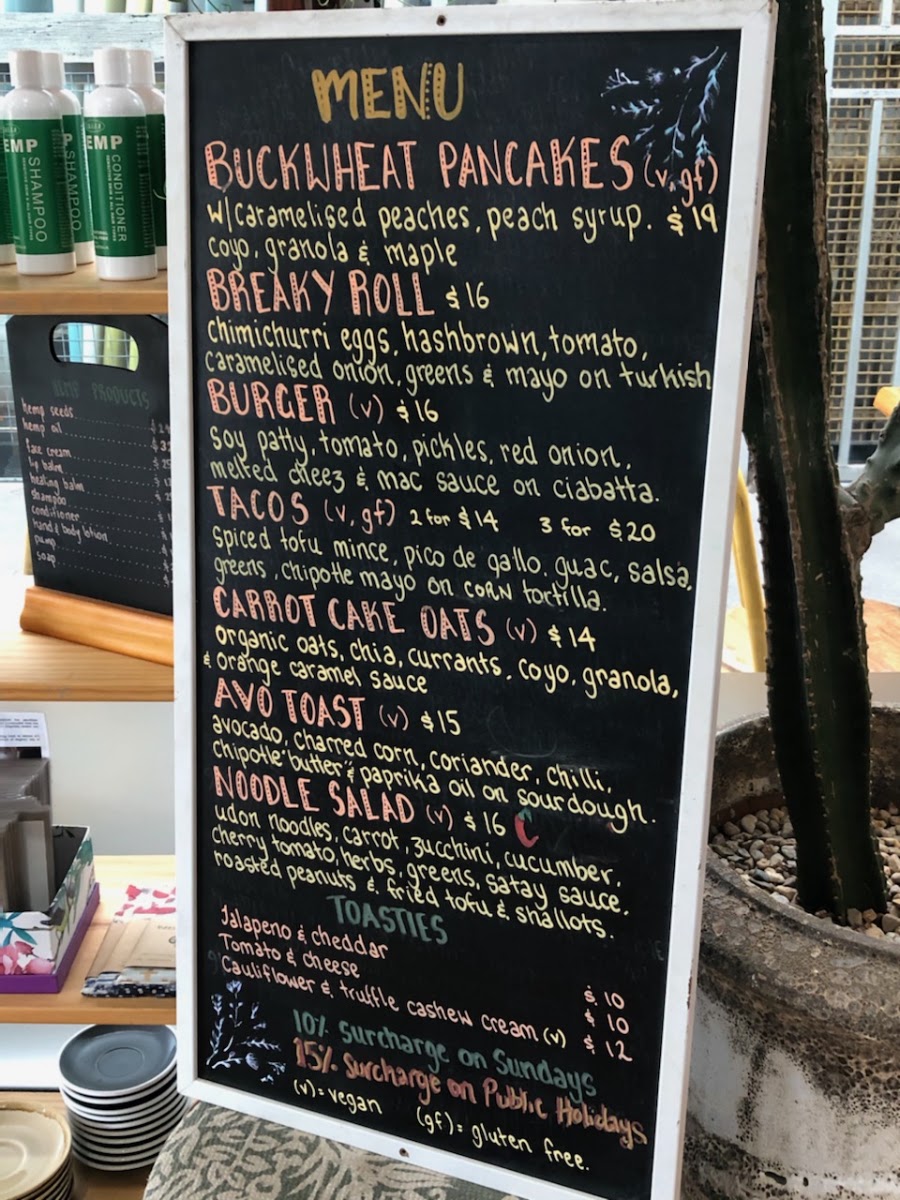 MENU
BUCKWHEAT PANCAKES (v, gf)
w/caramelised peaches, peach syrup. $19
coyo, granola & maple
BREAKY ROLL $16
chimichurri eggs, hashbrown, tomato,
caramelised onion, greens & mayo on turkish
BURGER (v) $16
soy patty, tomato, pickles, red onion,
melted cheez & mac sauce on ciabatta.
TACOS (v, gf) 2 for $14 3 for $20
spiced tofu mince, pico de gallo, guac, salsa,
greens, chipotle mayo on CORN tortilla.
CARROT CAKE OATS (v) $14
organic oats, chia, currants, coyo, granola,
& orange caramel sauce
AVO TOAST (v) $15
avocado, charred corn, coriander, chilli,
chipotle butter & paprika oil on sourdough.
NOODLE SALAD (v) $16
udon noodles, carrot, zucchini, cucumber,
cherry tomato, herbs, greens, satay sauce,
roasted peanuts & fried tofu & shallots.
TOASTIES
Jalapeno & cheddar $ 10
Tomato & cheese $ 10
Cauliflower & truffle cashew cream (v) $ 12
10% Surcharge on Sundays
15% Surcharge on Public Holidays
(v) = vegan (gf) = gluten free.
EMP SHAMPOO
EMP CONDITIONER
HEMP PRODUCTS
hemp seeds
hemp oil
face cream
lip balm
healing balm
shampoo
conditioner
hand & body lotion
pump
soap